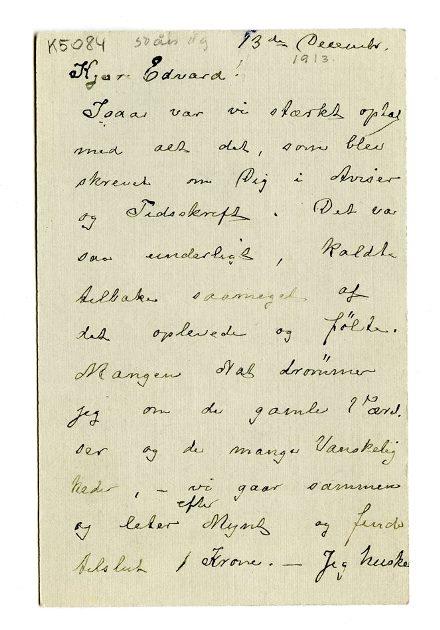 K5084 50 års dg 13de Decembr.
1913.
Kjære Edvard!
Igaar var vi stærkt optat
med alt det, som blev
skrevet om Dig i Aviser
og Tidsskrift. Det var
saa underligt, kaldte
tilbake saameget af
det oplevede og følte.
Mangen Nat drömmer
jeg om de gamle
ser og de mange Vanskelig
heder, – vi gaar sammen
og leter efter Mynt og finde
tilslut 1 Krone. – Jeg huske